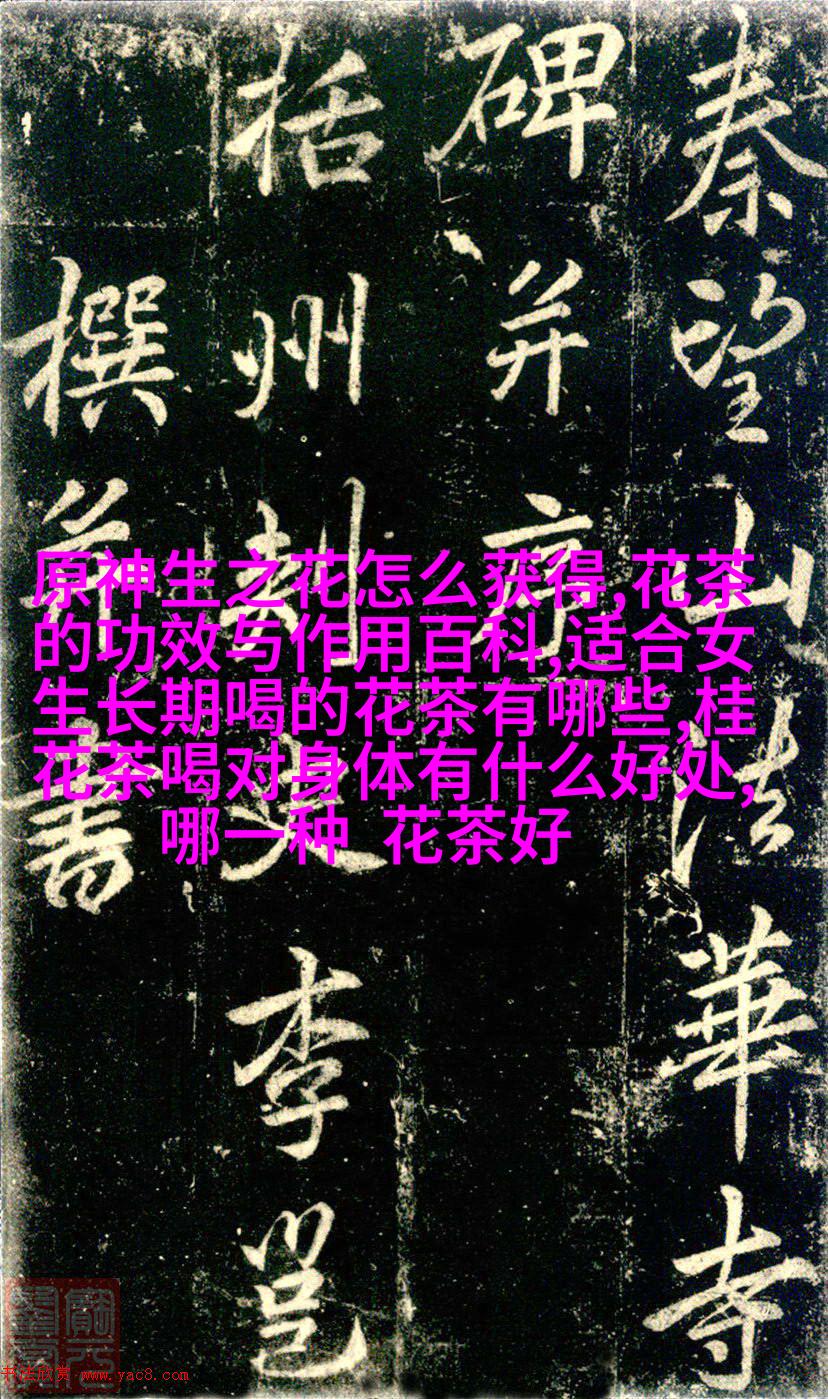 秦望山法華寺
碑并序
括州刺史李邕
撰并書
原神生之花怎么获得,花茶
的功效与作用百科,适合女
生长期喝的花茶有哪些,桂
花茶喝对身体有什么好处,
哪一种 花茶好
书法欣赏 www.yac8.com